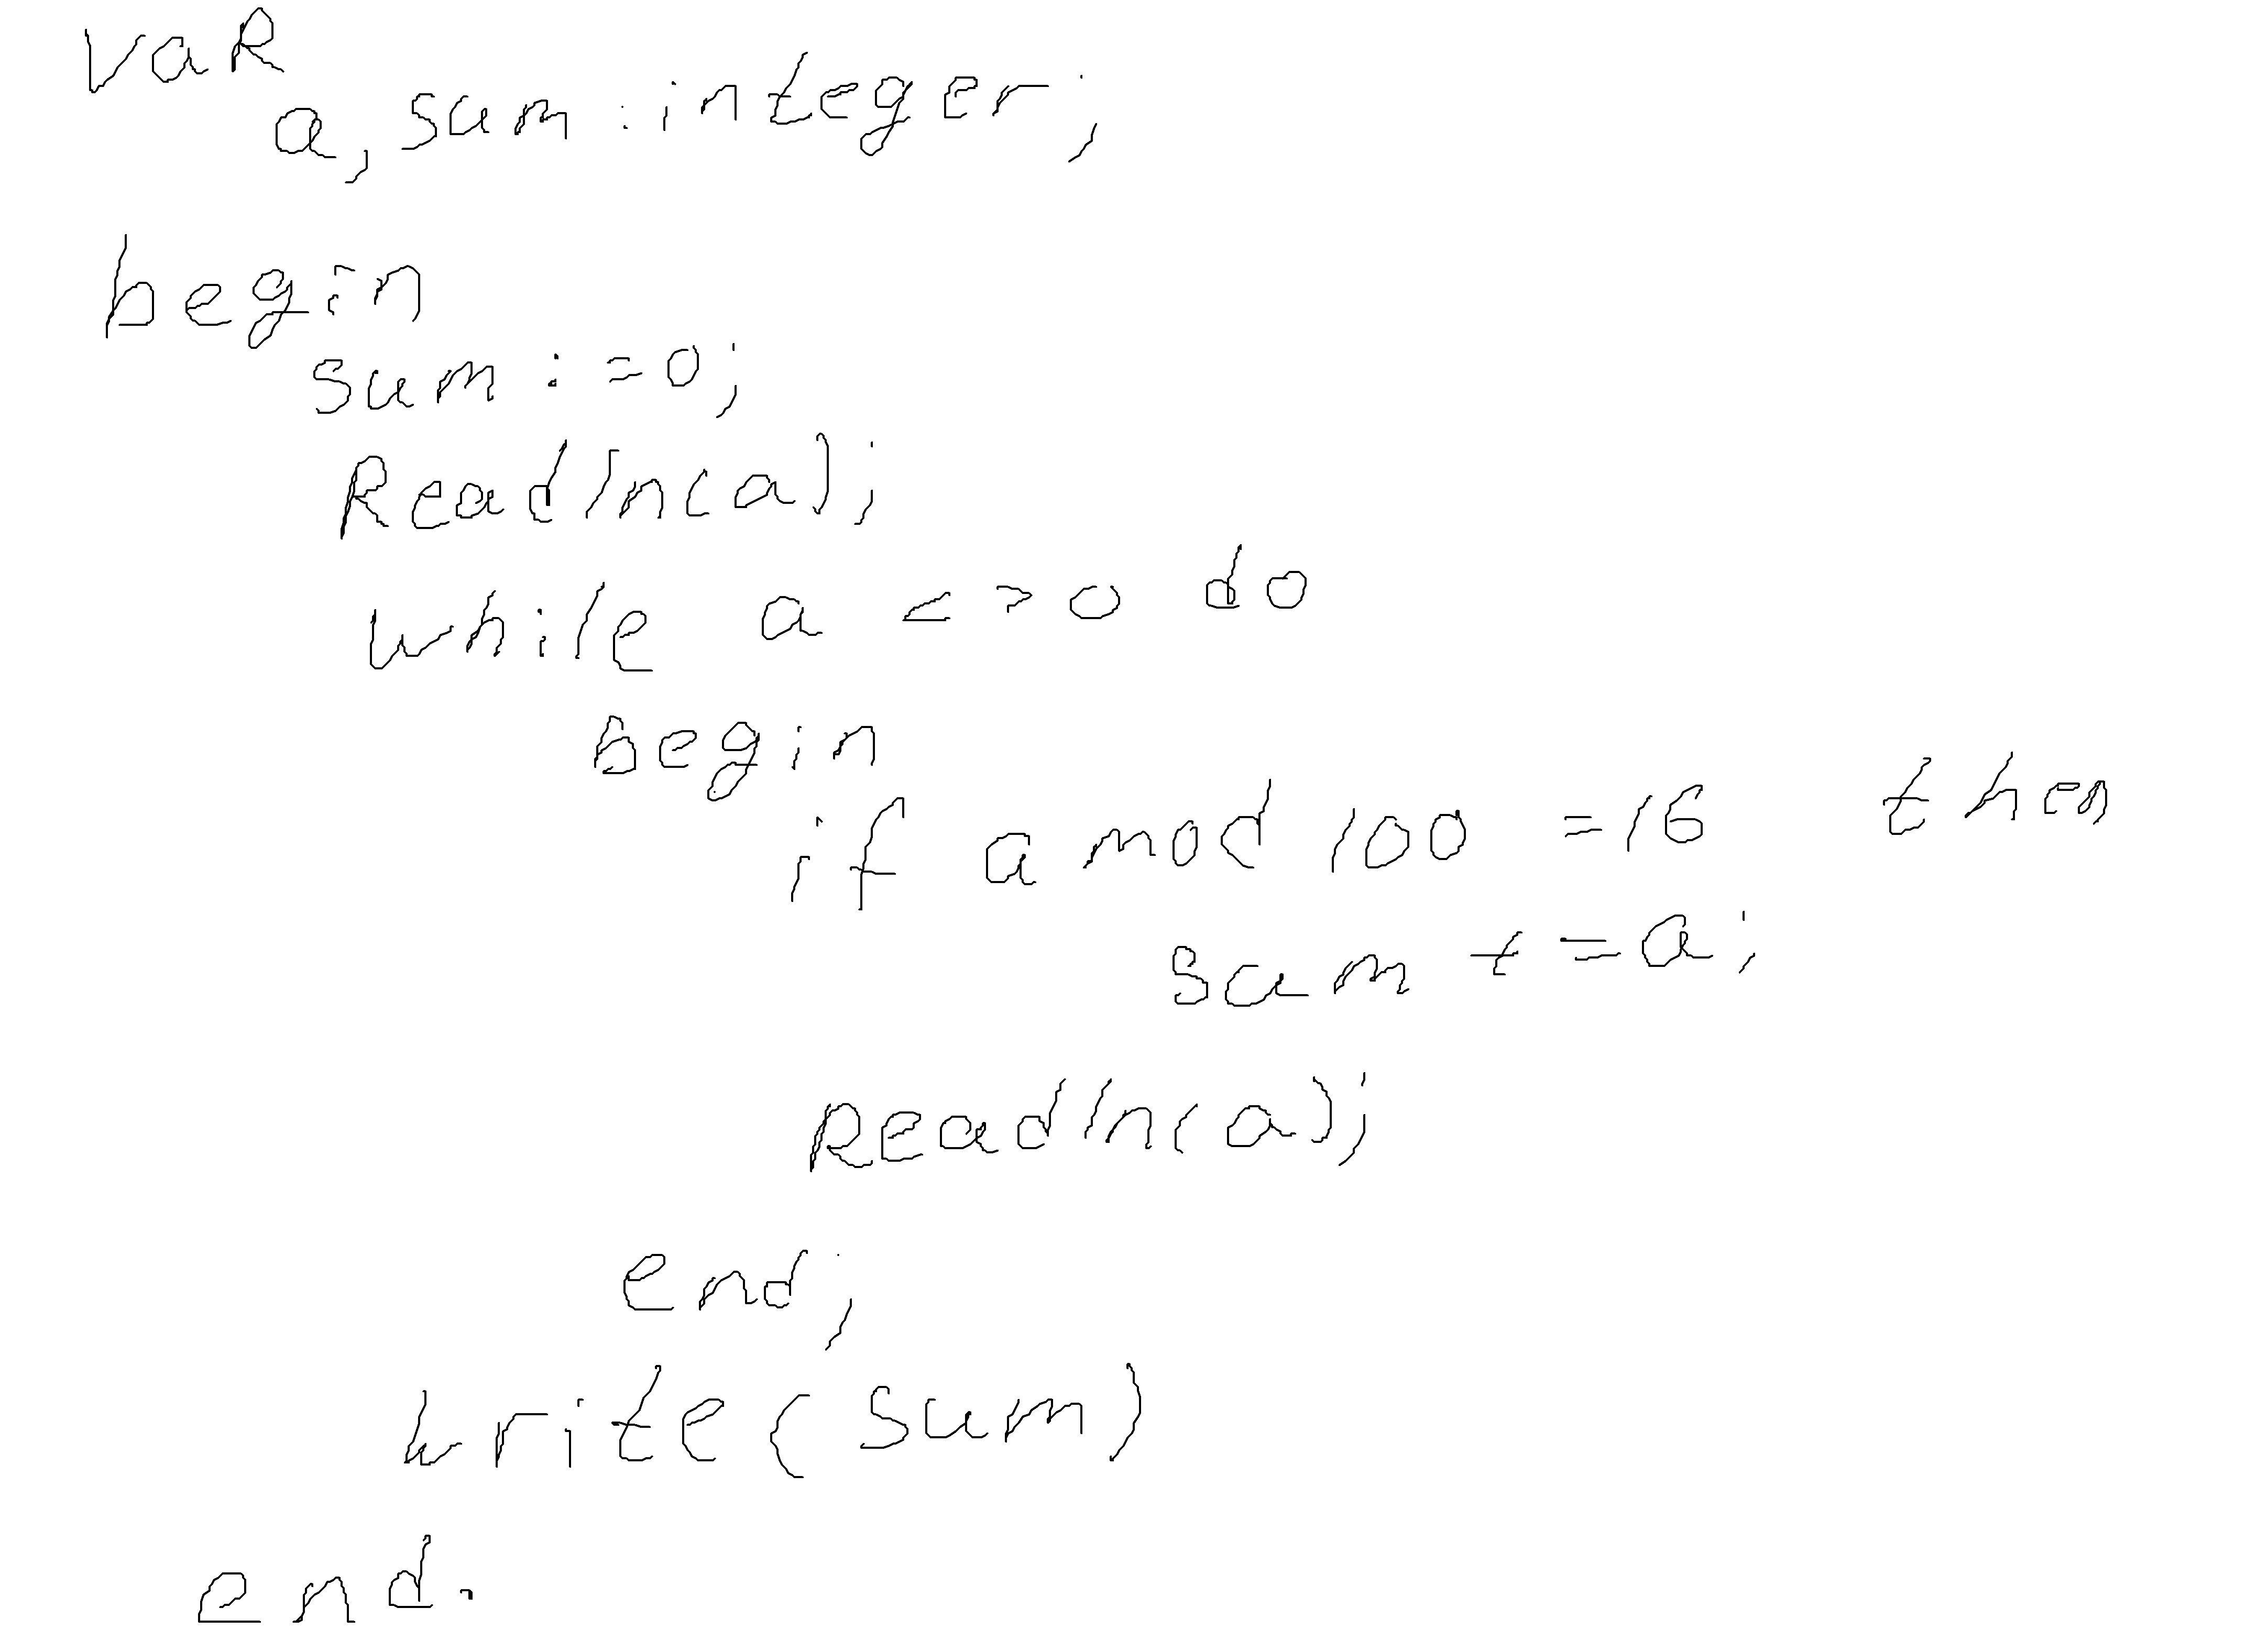 var
a, sum : integer;
begin
sum := 0;
Readln(a);
while a <> 0 do
begin
if a mod 100 = 16 then
sum += a;
Readln(a);
end;
write(sum)
end.